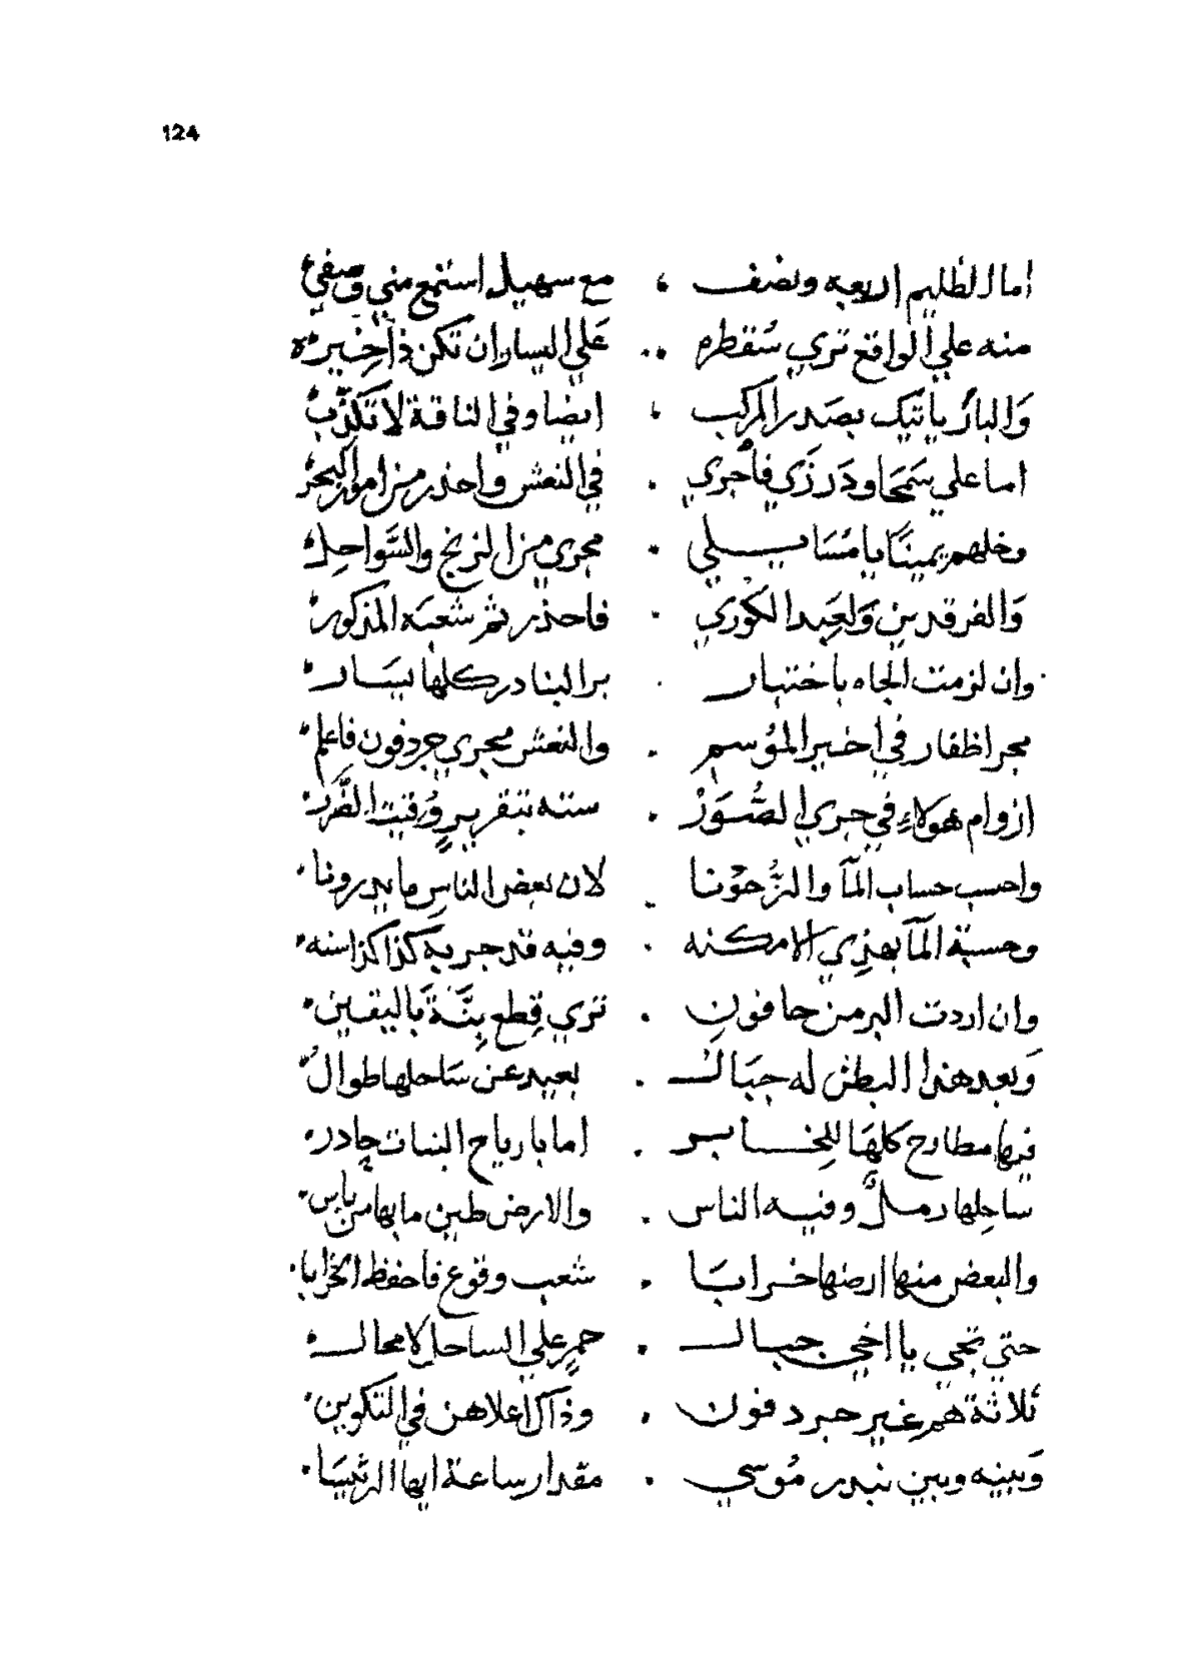 124
اما الظليم اربعه ونصف ، مع سهيل استمع مني وصفي
منه علي الواقع تري سُقطره .. عَلي اليسار ان تكن ذا خبره
وَالبار ياتيك بصَدر المركب ، ايضا وفي الناقة لا تكذّب
اما علي سَمحَا ودَرزَي فأجري . في النعش واحذر من امور البحر
وخلهم يمينًا يا مُسَايلي . مجري من الزنج والسَّواحل
وَالفرقدين وَلعَبد الكوري . فاحذر ثم شعبَه المذكور
وان لزمت الجاه باختبار . بر البنادر كلها يسَار
مجرا ظفار في اخير المؤسم . والنعش مجري جردفون فاعلم
ازوام هولاءِ في جري الصُّوَرْ . سته بتقريبٍ وُقيت الضَّرر
واحسب حساب المآ والزُّحوْنا . لان بعض الناسِ ما يدرونا
وحسبة المآ بهذي الامكنه . وفيه قد جربة كذا كذا سنه
وان اردت البر من حافونِ . تري قِطع بِنَّةَ باليقين
وَبعد هذا البطن له جبَال . بعيد عن سَاحلها طوال
فيها مطارح كلهَا للِخابر . اما بارياح البنات جادر
ساحِلها رملٌ وفيه الناس . والارض طين ما بها من باس
والبعض منها ارضها خرابَا . شعب وقوع فاحفظ الخرابا
حتي تجي يا اخي جبال . حمرٍ علي الساحل لا محال
ثلاثة هم غير جرد فون . وذاك اعلاهن في التكوين
وَبينه وبين بندر مُوسي . مقدار ساعة ايها الرئيسَا